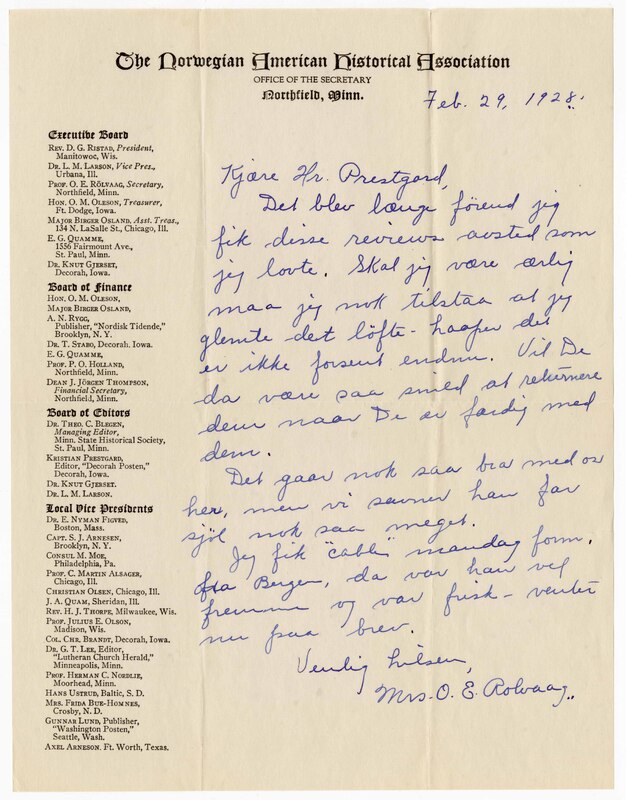 The Norwegian American Historical Association
OFFICE OF THE SECRETARY
Northfield, Minn.
Feb. 29, 1928.
Executive Board
REV. D. G. RISTAD, President,
Manitowoc, Wis.
DR. L. M. LARSON, Vice Pres.,
Urbana, Ill.
PROF. O. E. RÖLVAAG, Secretary,
Northfield, Minn.
HON. O. M. OLESON, Treasurer,
Ft. Dodge, Iowa.
MAJOR BIRGER OSLAND, Asst. Treas.,
134 N. LaSalle St., Chicago, Ill.
E. G. QUAMME,
1556 Fairmount Ave.,
St. Paul, Minn.
DR. KNUT GJERSET,
Decorah, Iowa.
Board of Finance
HON. O. M. OLESON,
MAJOR BIRGER OSLAND,
A. N. RYGG,
Publisher, "Nordisk Tidende,"
Brooklyn, N. Y.
DR. T. STABO, Decorah, Iowa.
E. G. QUAMME,
PROF. P. O. HOLLAND,
Northfield, Minn.
DEAN J. JÖRGEN THOMPSON,
Financial Secretary,
Northfield, Minn.
Board of Editors
DR. THEO. C. BLEGEN,
Managing Editor,
Minn. State Historical Society,
St. Paul, Minn.
KRISTIAN PRESTGARD,
Editor, "Decorah Posten,"
Decorah, Iowa.
DR. KNUT GJERSET,
DR. L. M. LARSON.
Local Vice Presidents
DR. E. NYMAN FIGVED,
Boston, Mass.
CAPT. S. J. ARNESEN,
Brooklyn, N. Y.
CONSUL M. MOE,
Philadelphia, Pa.
PROF. C. MARTIN ALSAGER,
Chicago, Ill.
CHRISTIAN OLSEN, Chicago, Ill.
J. A. QUAM, Sheridan, Ill.
REV. H. J. THORPE, Milwaukee, Wis.
PROF. JULIUS E. OLSON,
Madison, Wis.
COL. CHR. BRANDT, Decorah, Iowa.
DR. G. T. LEE, Editor,
"Lutheran Church Herald,"
Minneapolis, Minn.
PROF. HERMAN C. NORDLIE,
Moorhead, Minn.
HANS USTRUD, Baltic, S. D.
MRS. FRIDA BUE-HOMNES,
Crosby, N. D.
GUNNAR LUND, Publisher,
"Washington Posten,"
Seattle, Wash.
AXEL ARNESON. Ft. Worth, Texas.
Kjære Hr. Prestgard,
Det blev længe förend jeg
fik disse reviews avsted som
jeg lovte. Skal jeg være ærlig
maa jeg nok tilstaa at jeg
glemte det löfte - haaper det
er ikke forsent endnu. Vil De
da være saa snild at returnere
dem naar De er færdig med
dem.
Det gaar nok saa bra med os
her, men vi savner han far
sjöl nok saa meget.
Jeg fik "cable" mandag form.
fra Bergen, da var han vel
fremme og var frisk - venter
nu paa brev.
Venlig hilsen,
Mrs. O. E. Rolvaag.